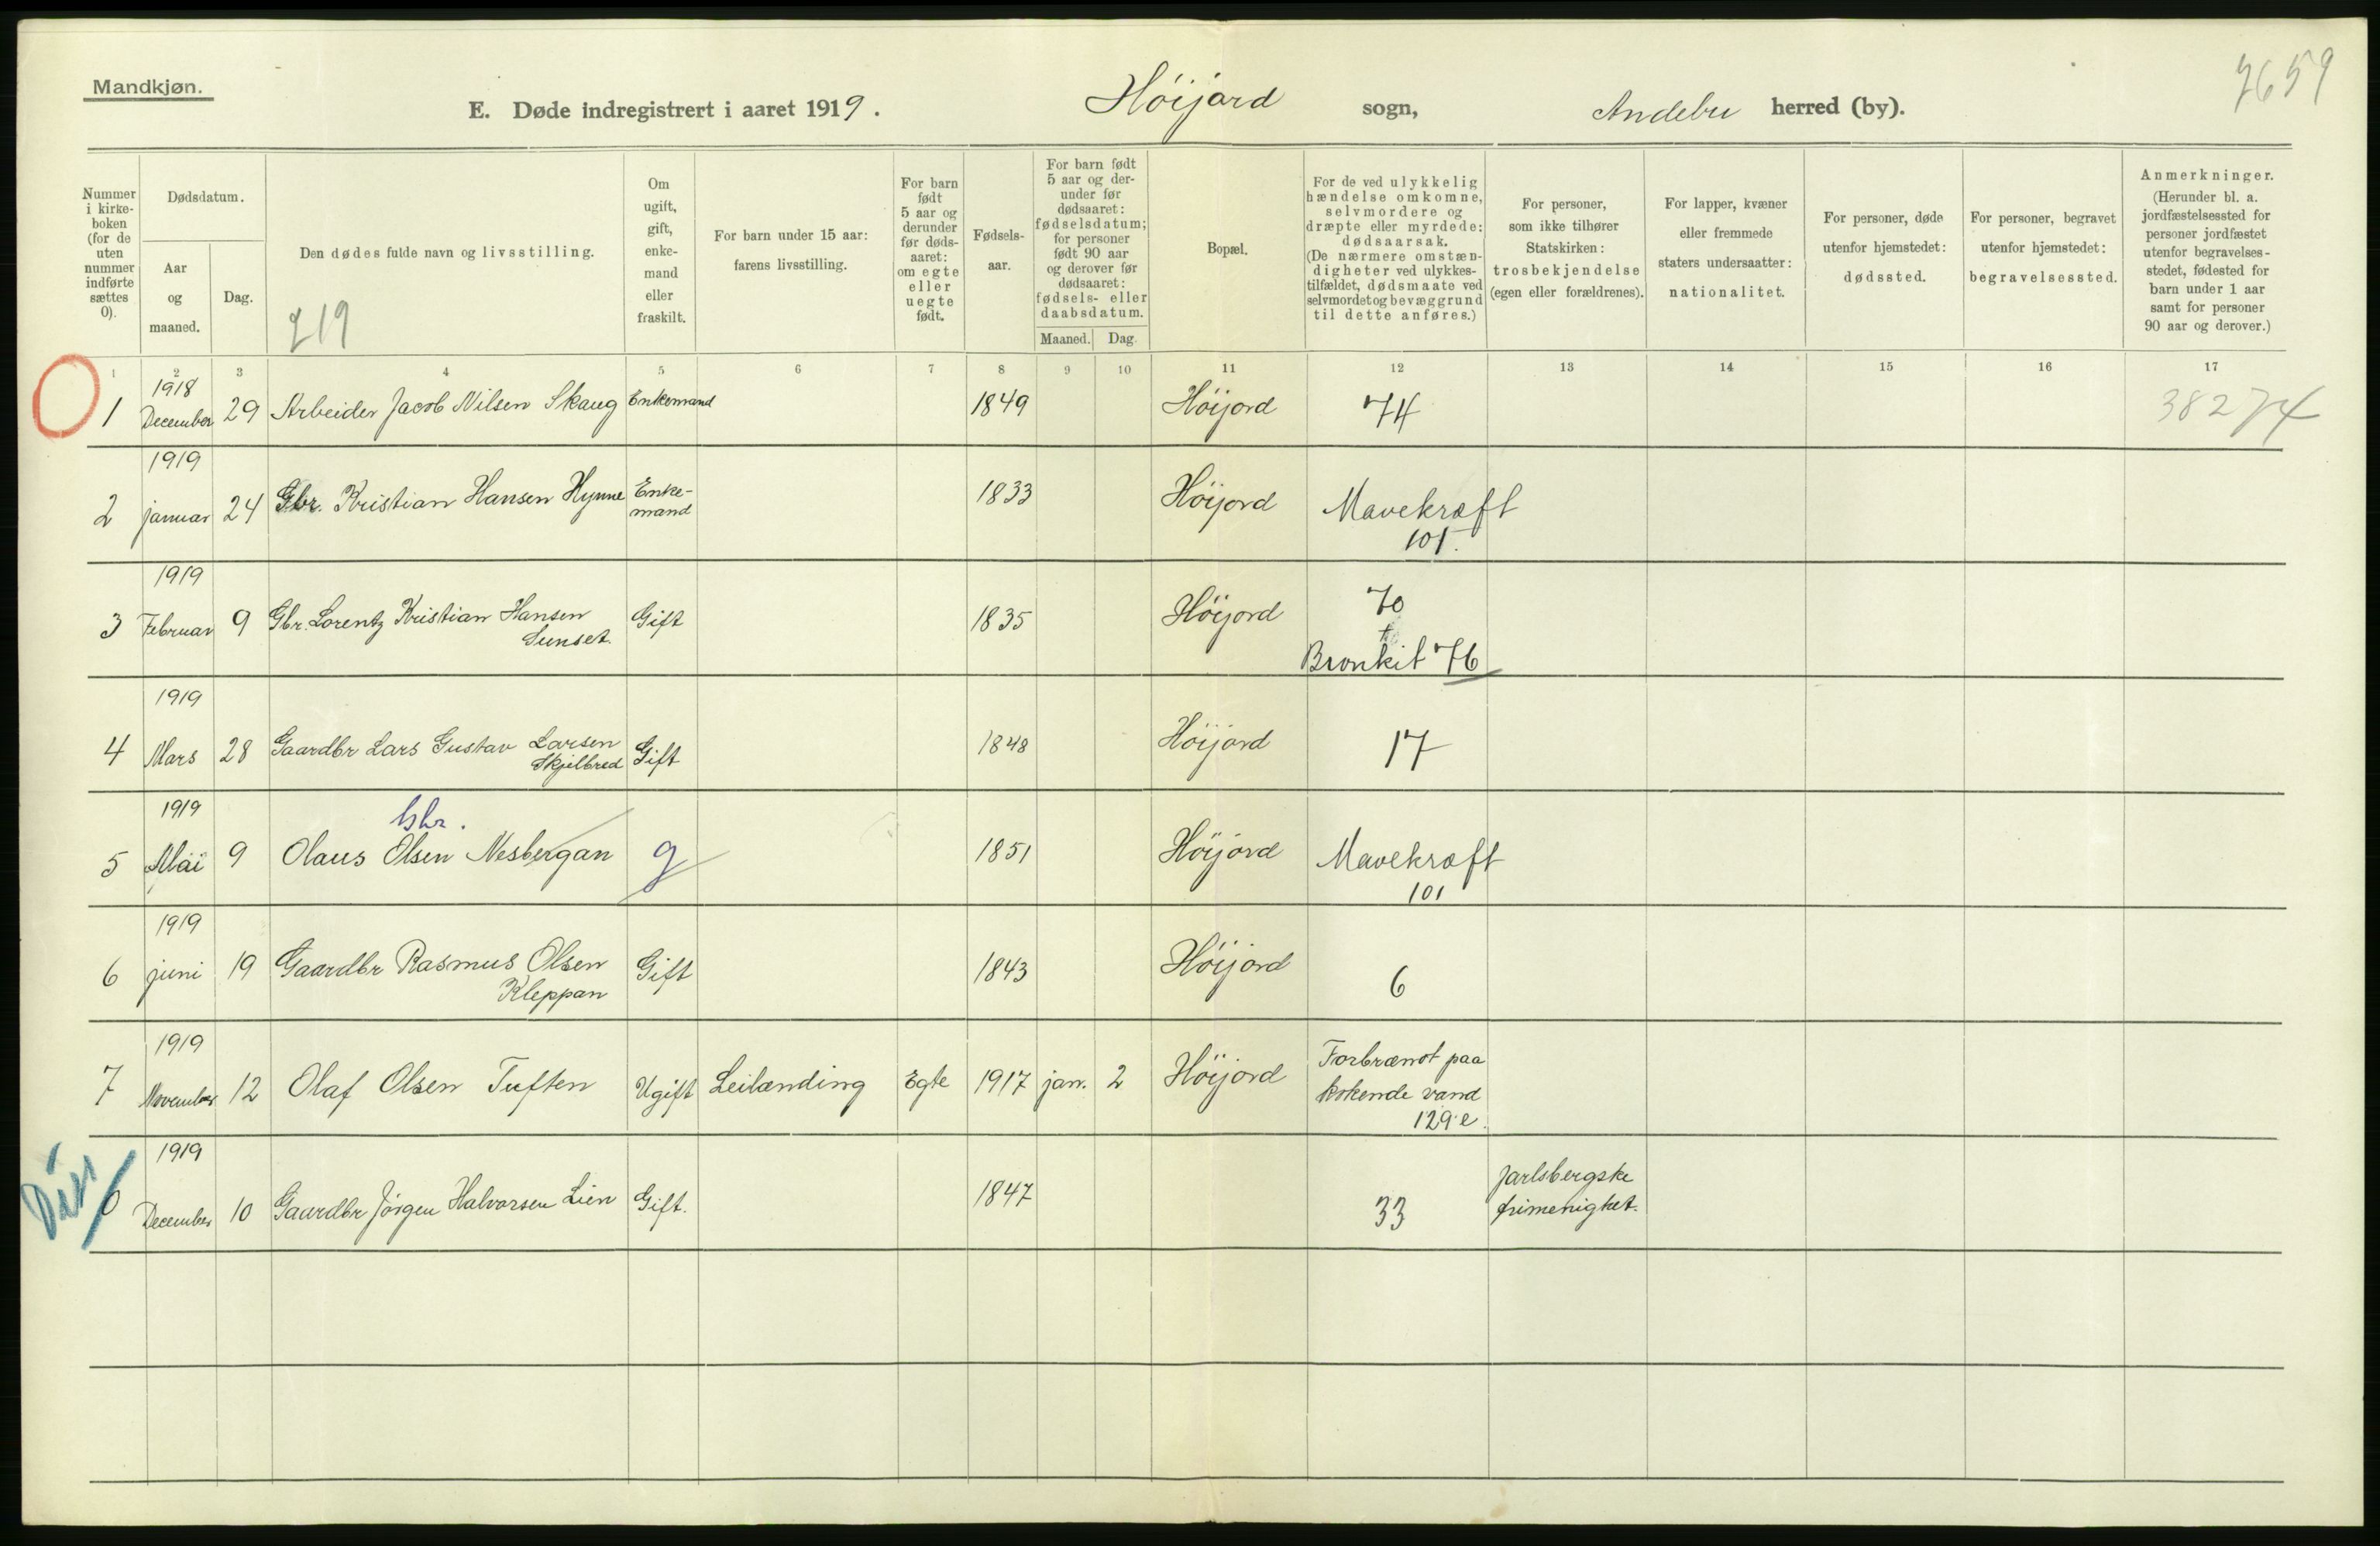 Mandkjøn.
E. Døde indregistrert i aaret 1919. Höijord sogn, Andebu herred (by).
7659
Nummer i kirke-boken (for de uten nummer indførte sættes 0).
Dødsdatum.
Aar og maaned.
Dag.
Den dødes fulde navn og livsstilling.
219
Om ugift, gift, enke-mand eller fraskilt.
For barn under 15 aar: farens livsstilling.
For barn født 5 aar og derunder før døds-aaret: om egte eller uegte født.
Fødsels-aar.
For barn født 5 aar og der-under før dødsaaret: fødselsdatum; for personer født 90 aar og derover før dødsaaret: fødsels- eller daabsdatum.
Maaned. Dag.
Bopæl.
For de ved ulykkelig hændelse omkomne, selvmordere og dræpte eller myrdede: dødsaarsak. (De nærmere omstæn-digheter ved ulykkes-tilfældet, dødsmaate ved selvmordet og bevæggrund til dette anføres.)
For personer, som ikke tilhører Statskirken: trosbekjendelse (egen eller forældrenes).
For lapper, kvæner eller fremmede staters undersaatter: nationalitet.
For personer, døde utenfor hjemstedet: dødssted.
For personer, begravet utenfor hjemstedet: begravelsessted.
Anmerkninger. (Herunder bl. a. jordfæstelsessted for personer jordfæstet utenfor begravelses-stedet, fødested for barn under 1 aar samt for personer 90 aar og derover.)
1 2 3 4 5 6 7 8 9 10 11 12 13 14 15 16 17
1918
1 December 29 Arbeider Jacob Nilsen Skaug Enkemand 1849 Höijord 74 38274
1919
2 januar 24 Gbr. Kristian Hansen Hynne Enke-mand 1833 Höijord Mavekræft
101.
1919
3 Februar 9 Gbr. Lorentz Kristian Hansen Gift 1835 Höijord 70
Sunset. +
Bronkit 76
1919
4 Mars 28 Gaardbr Lars Gustav Larsen Gift 1848 Höijord 17
Skjelbred
1919
5 Mai 9 Olaus Olsen Nesbergan g 1851 Höijord Mavekræft
101
1919
6 juni 19 Gaardbr Rasmus Olsen Gift 1843 Höijord 6
Kleppan
1919
7 November 12 Olaf Olsen Tuften Ugift Leilænding Egte 1917 jan. 2 Höijord Forbrændt paa
kokende vand
129.e.
1919
0 December 10 Gaardbr Jörgen Halvorsen Lien Gift. 1847 33 Jarlsbergske
frimenighet.